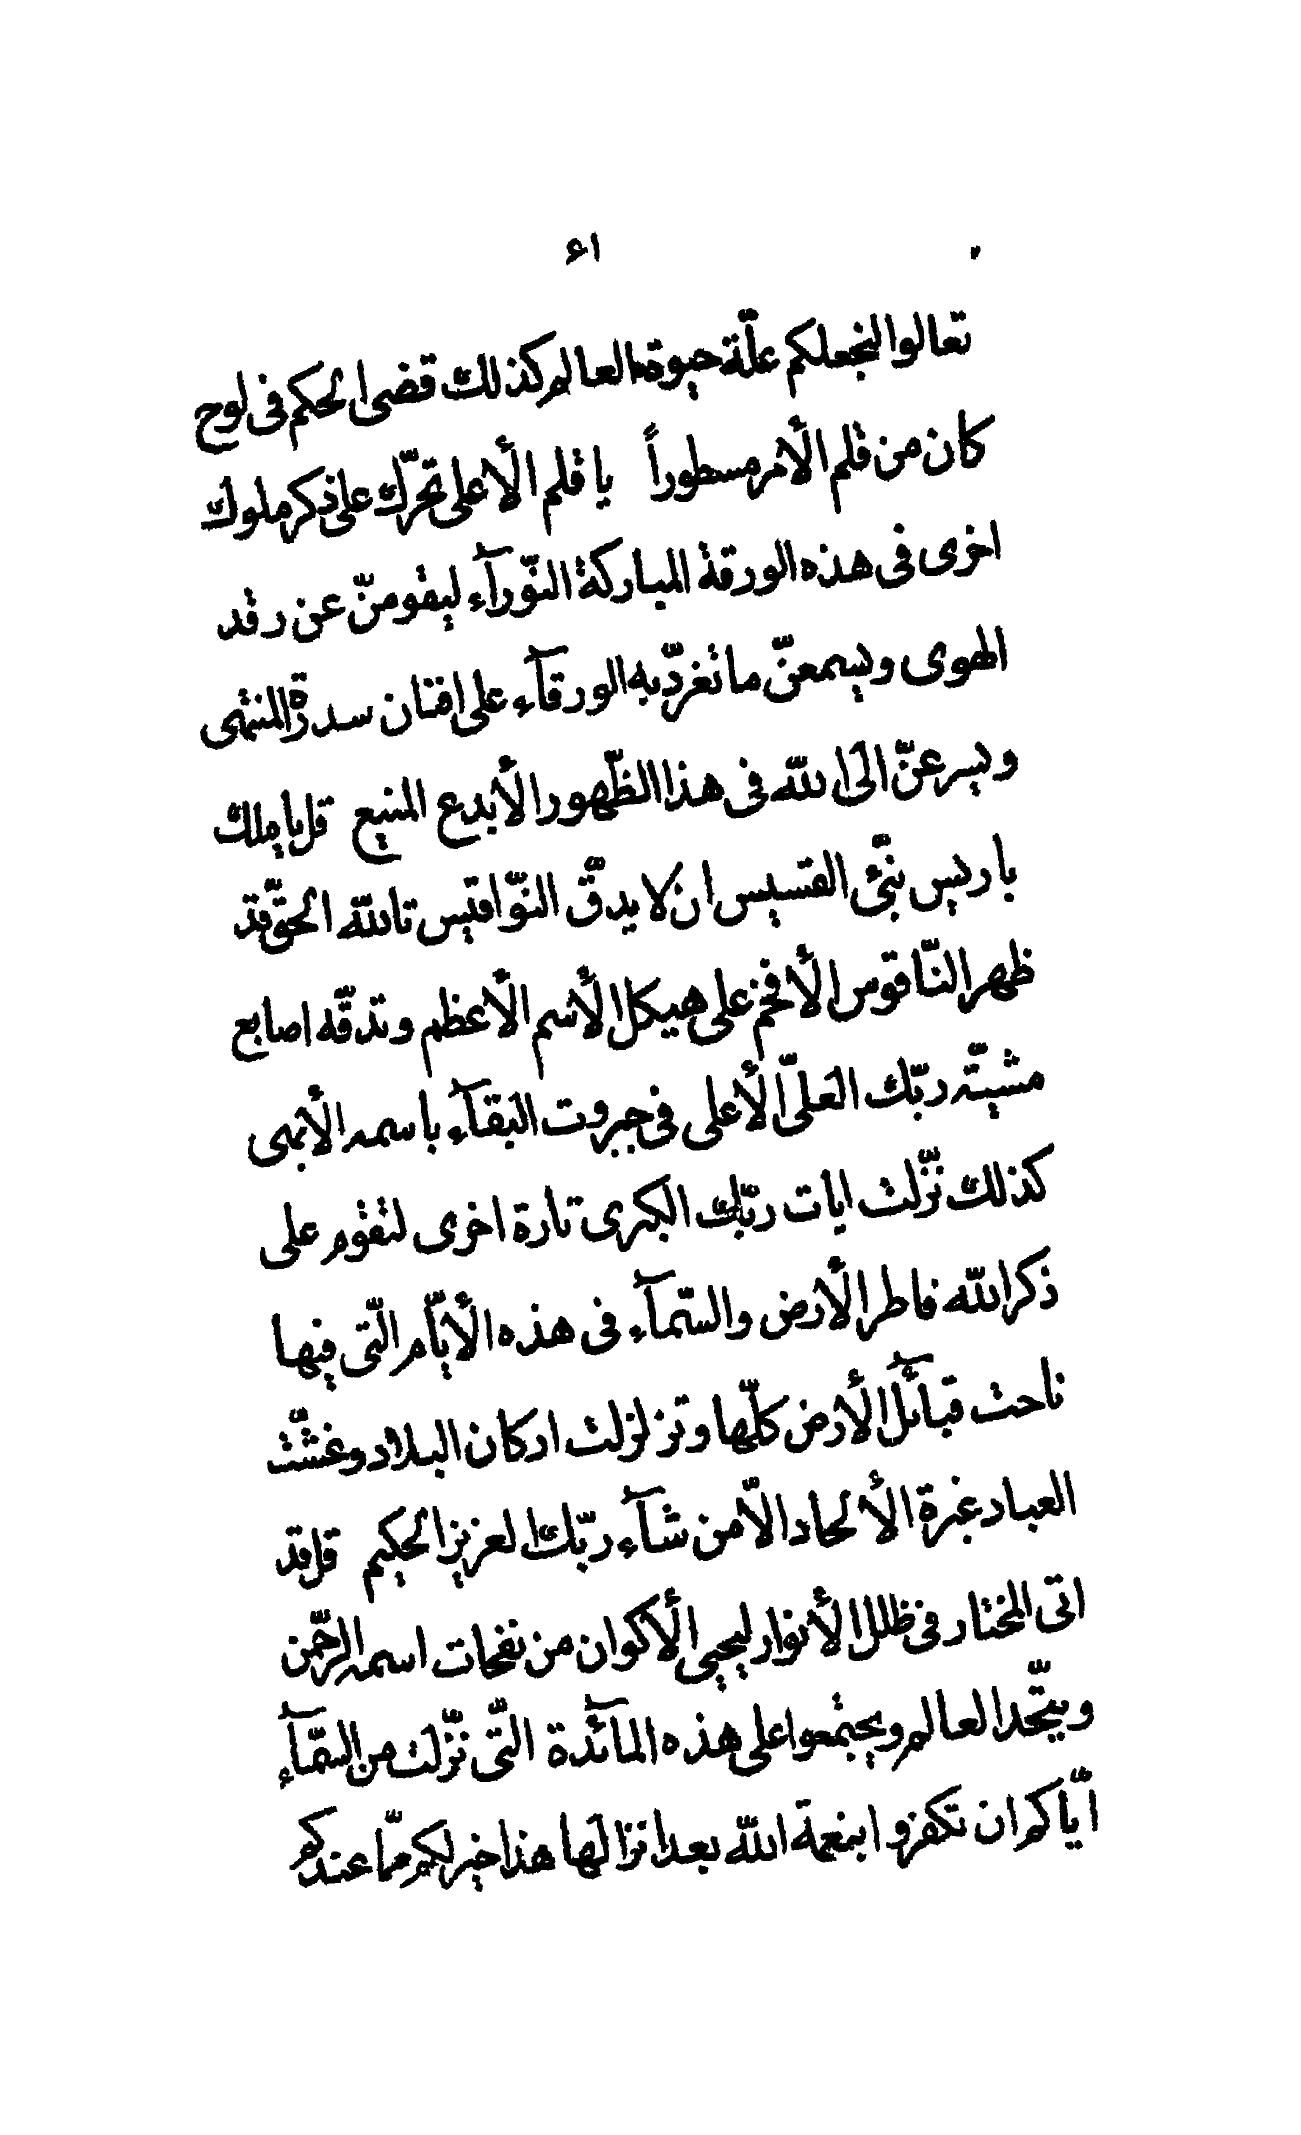 ١٤
تعالوا لنجعلكم علّة حيوة العالم كذلك قضى الحكم فى لوح
كان من قلم الأمر مسطوراً يا قلم الأعلى تحرّك على ذكر ملوك
اخرى فى هذه الورقة المباركة النّورآء ليقومنّ عن رقد
الهوى ويسمعنّ ما تغرّد به الورقآء على افنان سدرة المنتهى
ويسرعنّ الى الله فى هذا الظّهور الأبدع المنيع قل يا ملك
باريس نبّئ القسيس ان لا يدقّ النّواقيس تالله الحقّ قد
ظهر النّاقوس الأفخم على هيكل الأسم الأعظم وتدقّه اصابع
مشيّة ربّك العلىّ الأعلى فى جبروت البقآء باسمه الأبهى
كذلك نزّلت ايات ربّك الكبرى تارة اخرى لتقوم على
ذكر الله فاطر الأرض والسّمآء فى هذه الأيّام الّتى فيها
ناحت قبآئل الأرض كلّها وتزلزلت اركان البلاد وغشّت
العباد غبرة الألحاد الّا من شآء ربّك العزيز الحكيم قل قد
اتى المختار فى ظلل الأنوار ليحيى الأكوان من نفحات اسمه الرّحمن
ويتّحد العالم ويجتمعوا على هذه المآئدة الّتى نزّلت من السّمآء
ايّاكم ان تكفروا بنعمة الله بعد انزالها هذا خير لكم ممّا عندكم